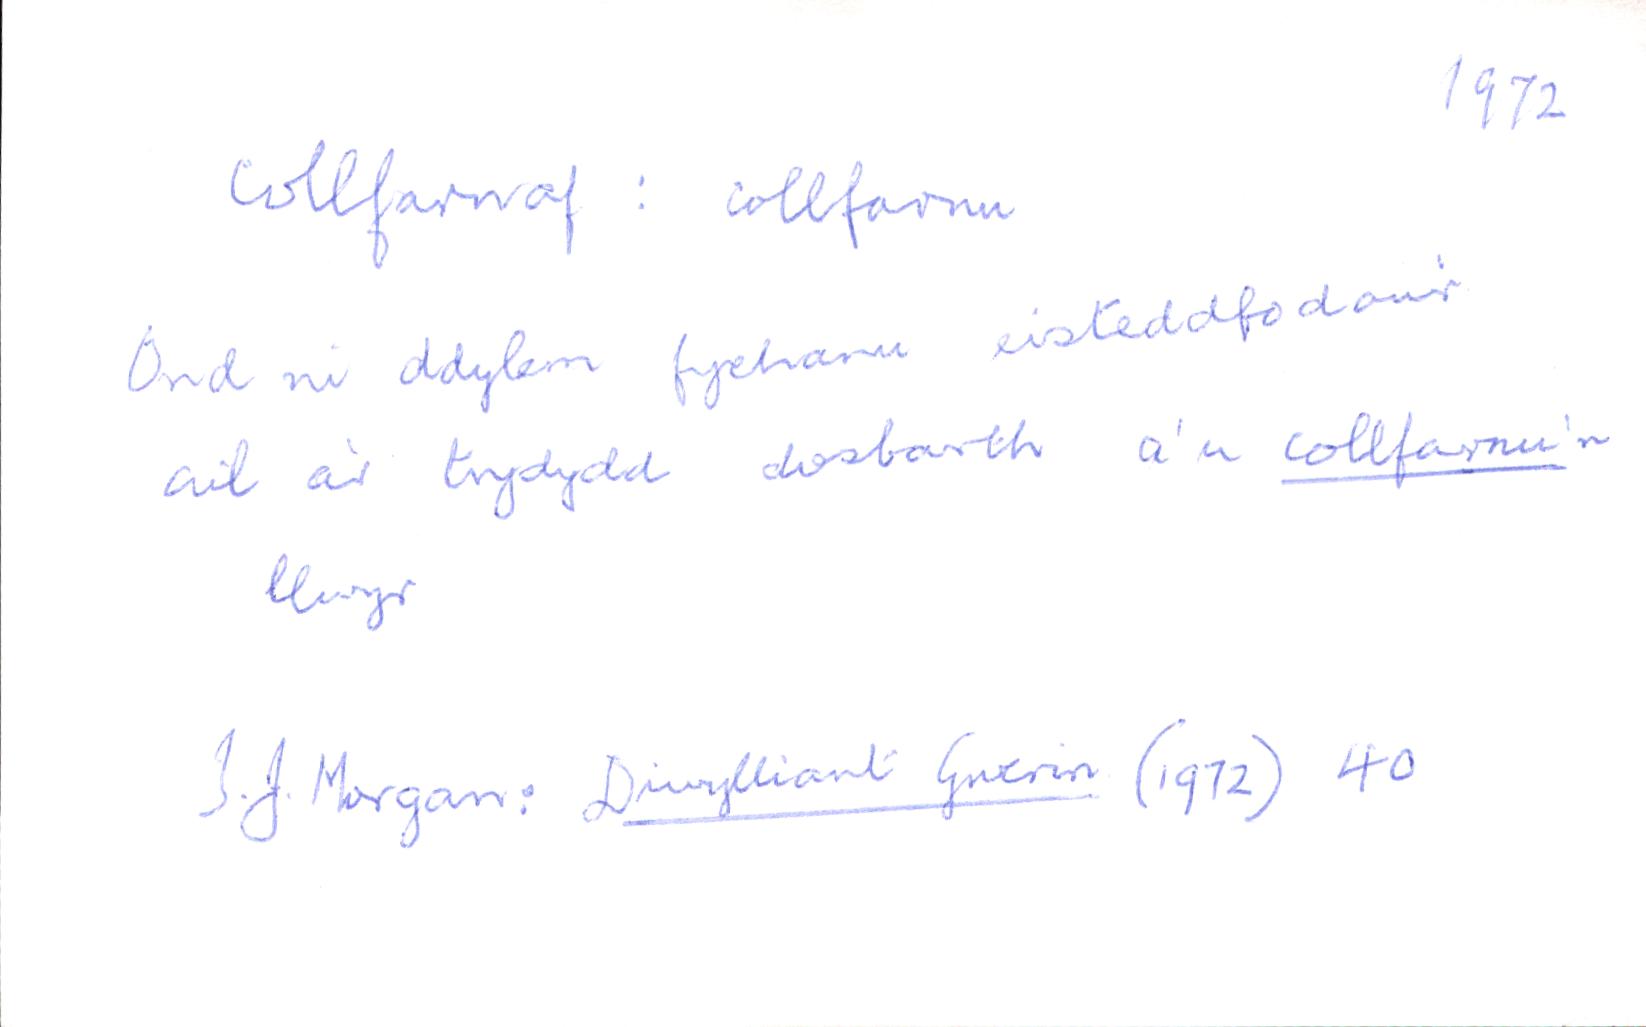 1972
Collfarnaf : collfarnu
Ond ni ddylem fychanu eisteddfodau'r
ail a'r trydydd dosbarth a'u collfarnu'n
llwyr
T.J. Morgan: Diwylliant Gwerin (1972) 40